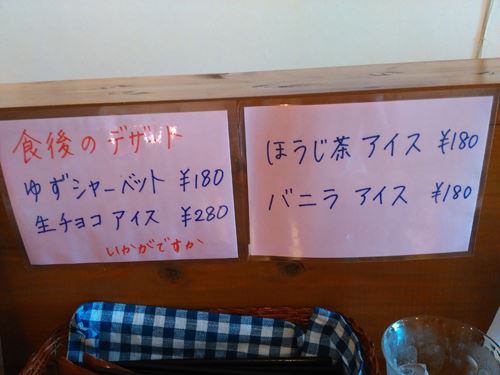 食後のデザート
ゆずシャーベット ¥180
生チョコアイス ¥280
いかがですか
ほうじ茶 アイス ¥180
バニラ アイス ¥180